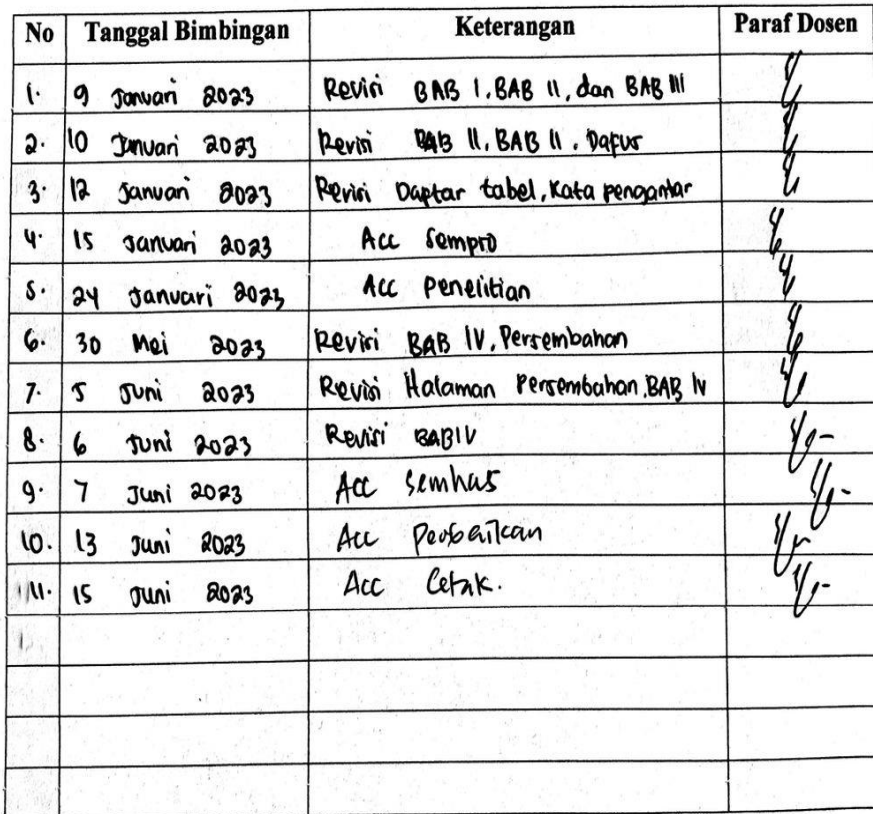 No Tanggal Bimbingan Keterangan Paraf Dosen
1. 9 Januari 2023 Revisi BAB I, BAB II, dan BAB III
2. 10 Januari 2023 Revisi BAB II, BAB II, Dafus
3. 12 Januari 2023 Revisi Daptar tabel, Kata pengantar
4. 15 Januari 2023 Acc Sempro
5. 24 Januari 2023 Acc Penelitian
6. 30 Mei 2023 Revisi BAB IV, Persembahan
7. 5 Juni 2023 Revisi Halaman Persembahan, BAB IV
8. 6 Juni 2023 Revisi BAB IV
9. 7 Juni 2023 Acc Semhas
10. 13 Juni 2023 Acc Perbaikan
11. 15 Juni 2023 Acc Cetak.